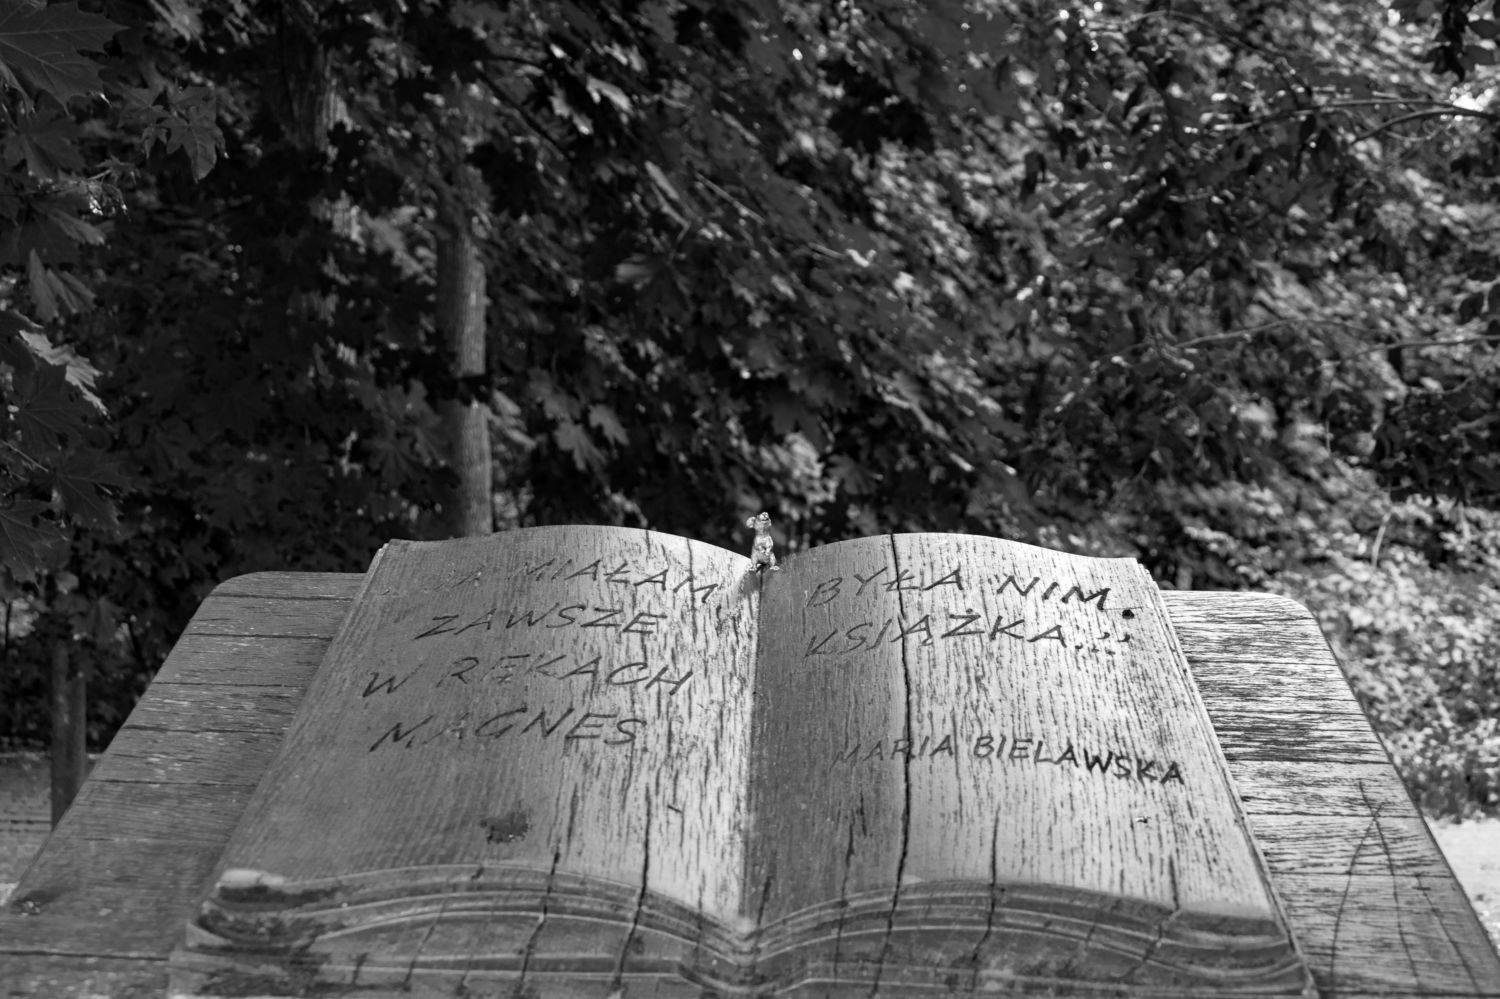 MIAŁAM
ZAWSZE
W RĘKACH
MAGNES
BYŁA NIM
KSIĄŻKA...
MARIA BIELAWSKA